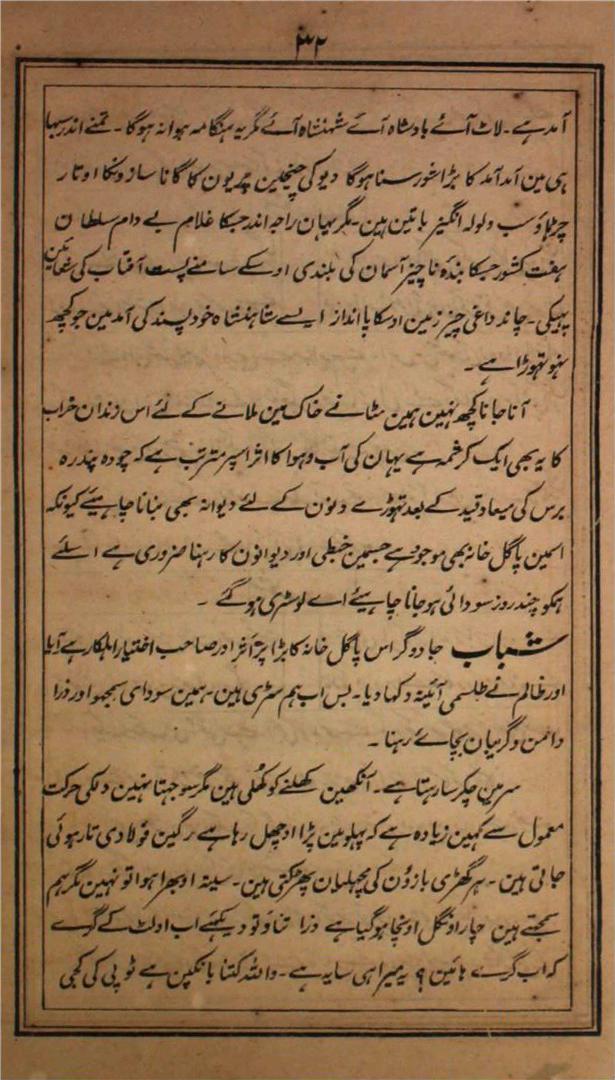 ۳۲
آمد ہے۔ لاٹ آئے بادشاہ آئے شہنشاہ آئے مگر یہ ہنگامہ ہوا نہ ہوگا۔ تمنے اندر سبہا
ہی مین آمد آمد کا بڑا شور سنا ہوگا دیو کی چنچلین پریون کا گانا سازونکا اوتار
چڑہاؤ سب ولولہ انگیز باتین ہین۔ مگر یہان راجہ اندر جسکا غلام بے دام سلطان
ہفت کشور جسکا بندۂ ناچیز آسمان کی بلندی اوسکے سامنے پست آفتاب کی شعائین
پہیکی۔ چاند داغی چیز زمین اوسکا پا انداز ایسے شاہنشاہ خود پسند کی آمد مین جو کچھ
نہو تہوڑا ہے۔
آنا جانا کچھ نہین ہمین مٹانے خاک مین ملانے کے لئے اس زندان خراب
کا یہ بھی ایک کرشمہ ہے یہان کی آب و ہوا کا اثر اسپر مترتب ہے کہ چودہ پندرہ
برس کی میعاد قید کے بعد تہوڑے دنون کے لئے دیوانہ بھی بنانا چاہیئے کیونکہ
اسمین پاگل خانہ بھی موجود ہے جسمین خبطی اور دیوانون کا رہنا ضروری ہے اسلئے
ہمکو چند روز سودائی ہو جانا چاہیئے اے لو سڑی ہو گئے۔
شباب جادوگر اس پاگل خانہ کا بڑا پر اثر اور صاحب اختیار اہلکار ہے آیا
اور ظالم نے طلسمی آئینہ دکھا دیا۔ بس اب ہم سڑی ہین۔ ہمین سودای سمجھو اور ذرا
دامن و گریبان بچائے رہنا۔
سر مین چکر سا رہتا ہے۔ آنکھین کھلنے کو کھلی ہین مگر سوجہتا نہین دلکی حرکت
معمول سے کہین زیادہ ہے کہ پہلو مین پڑا اوچھل رہا ہے رگین فولادی تار ہوئی
جاتی ہین۔ ہر گھڑی بازؤن کی مچہلیان پھڑکتی ہین۔ سینہ اوبھرا ہوا تو نہین مگر ہم
سمجتے ہین چار اونگل اونچا ہو گیا ہے ذرا تناؤ تو دیکہئے اب اولٹ کے گرے
کہ اب گرے ہائین ؟ یہ میرا ہی سایہ ہے۔ واللہ کتنا بانکپن ہے ٹوپی کی کجی